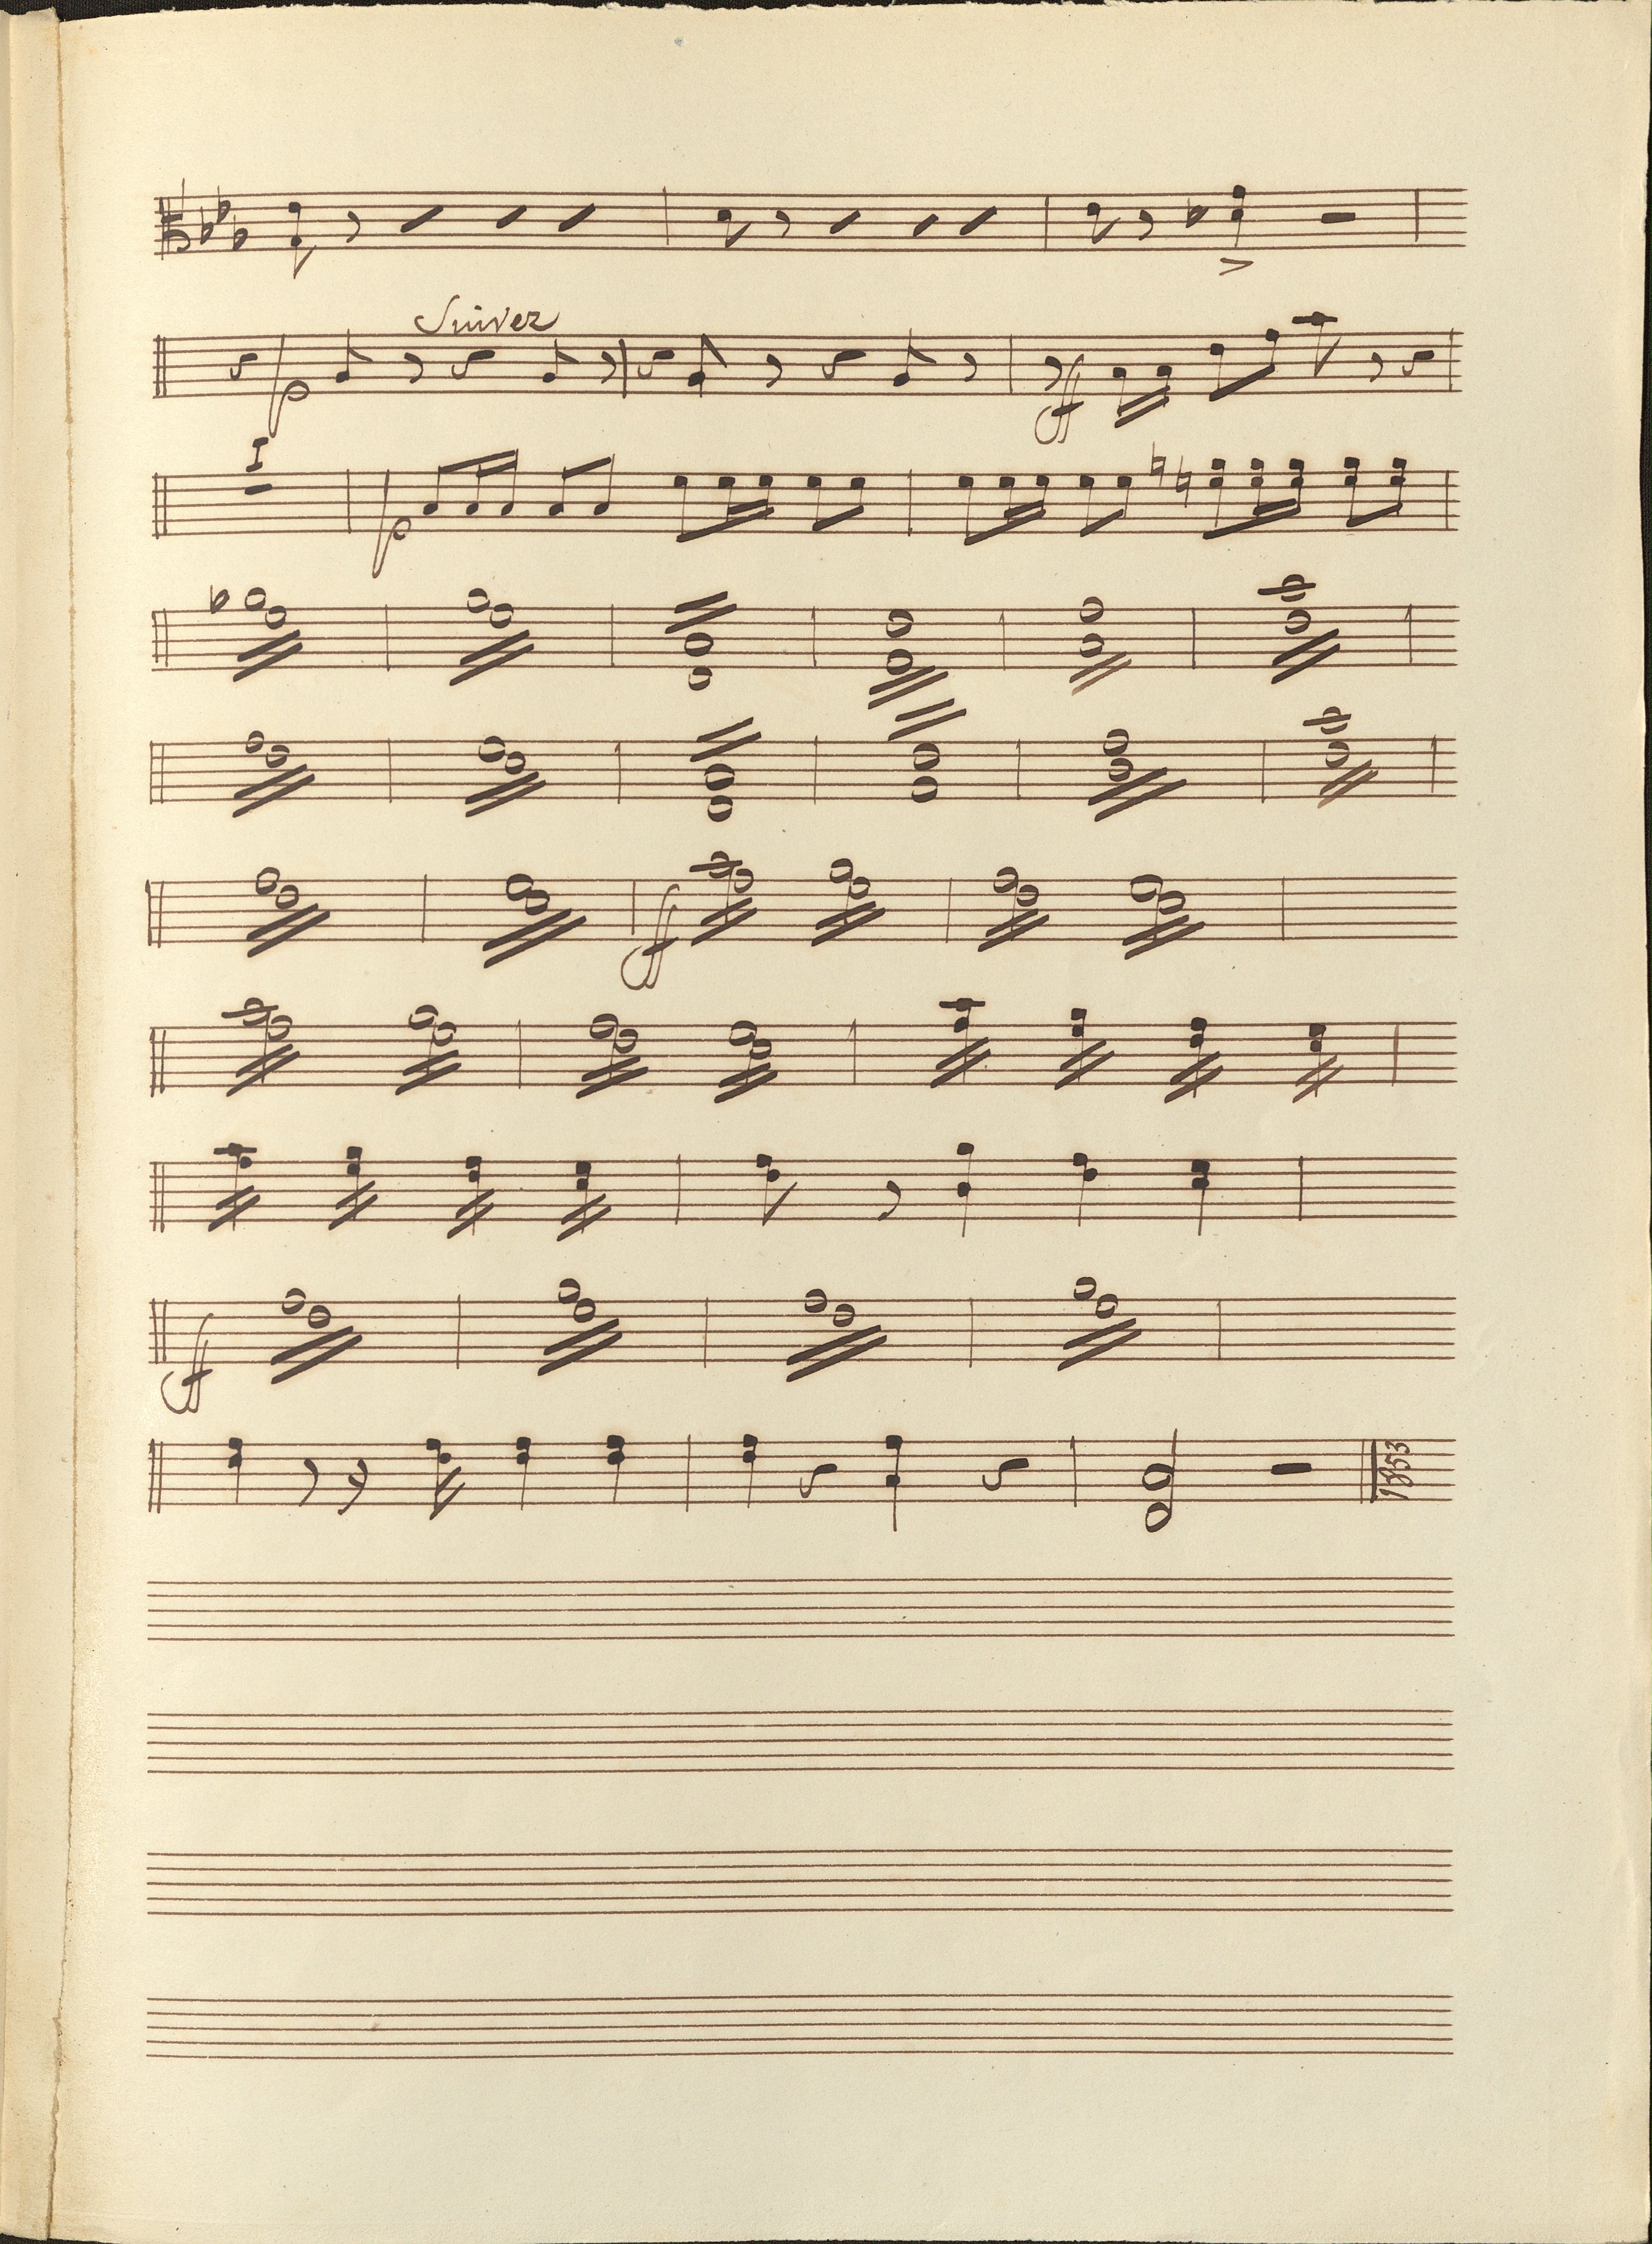 Suivez
p
ff
1
p
ff
ff
1853